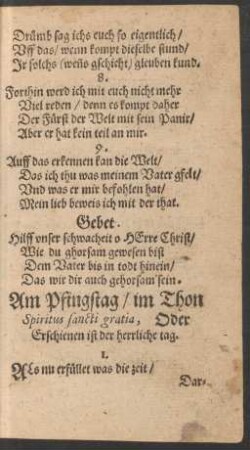 Drumb sag ichs euch so eigentlich/
Uff das/ wenn kompt dieselbe stund/
Ir solchs (weñs gschicht) gleuben kund.
8.
Forthin werd ich mit euch nicht mehr
Viel reden/ denn es kompt daher
Der Fürst der Welt mit sein Panir/
Aber er hat kein teil an mir.
9.
Auff das erkennen kan die Welt/
Das ich thu was meinem Vater gfelt/
Vnd was er mir befohlen hat/
Mein lieb beweis ich mit der that.
Gebet.
Hilff vnser schwacheit o HErre Christ/
Wie du ghorsam gewesen bist
Dem Vater bis in todt hinein/
Das wir dir auch gehorsam sein.
Am Pfingstag/ im Thon
Spiritus sancti gratia, Oder
Erschienen ist der herrliche tag.
1.
ALs nu erfüllet was die zeit/
Dar-